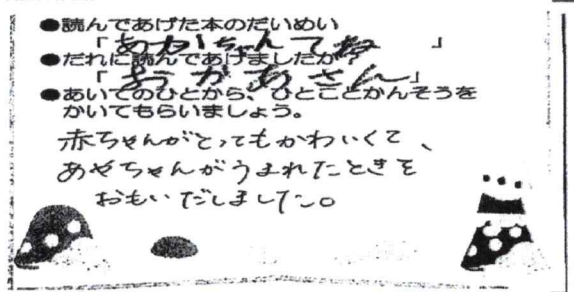 ●読んであげた本のだいめい
「あかちゃんてね」
●だれに読んであげましたか？
「おかあさん」
●あいてのひとから、ひとことかんそうを
かいてもらいましょう。
赤ちゃんがとってもかわいくて、
あやちゃんがうまれたときを
おもいだしました。